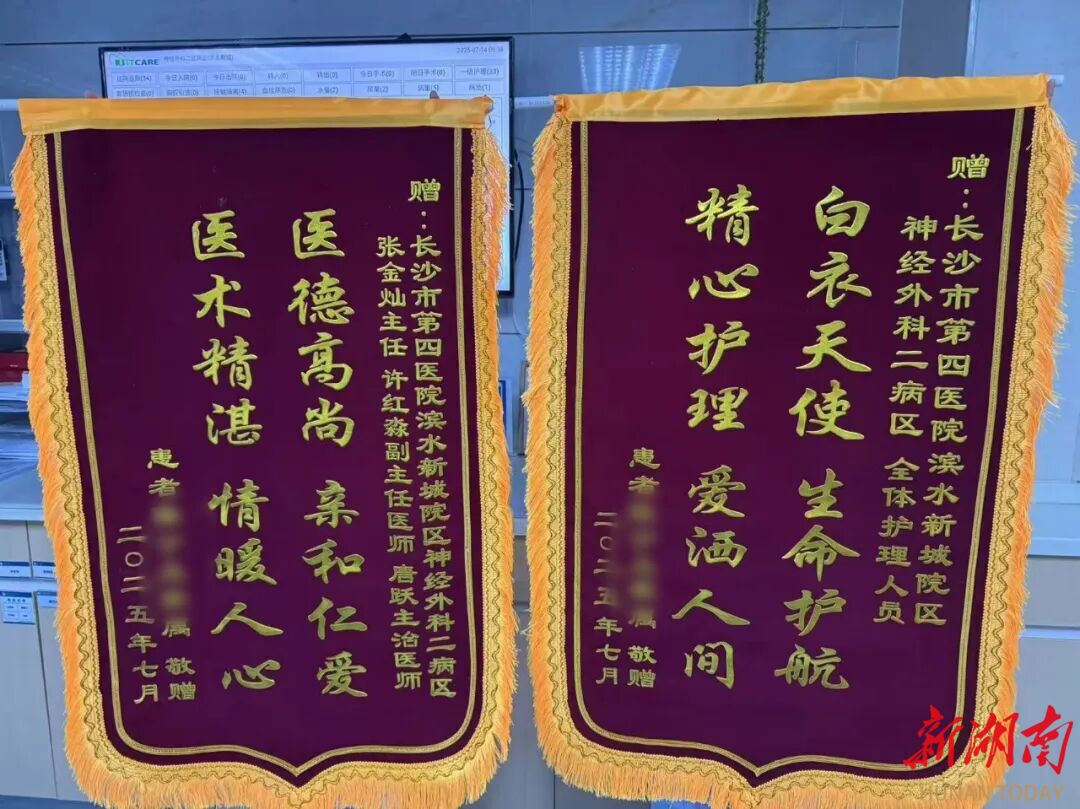 今日入院(0) 今日出院(0) 转入(0) 转出(0) 今日手术(0) 明日手术(0) 一级护理(33)
赠：长沙市第四医院滨水新城院区神经外科二病区
张金灿主任 许红淼副主任医师 唐跃主治医师
医德高尚 亲和仁爱
医术精湛 情暖人心
患者 属 敬赠
二〇二五年七月
赠：长沙市第四医院滨水新城院区
神经外科二病区 全体护理人员
白衣天使 生命护航
精心护理 爱洒人间
患者 属 敬赠
二〇二五年七月
新湖南
HUNAN TODAY